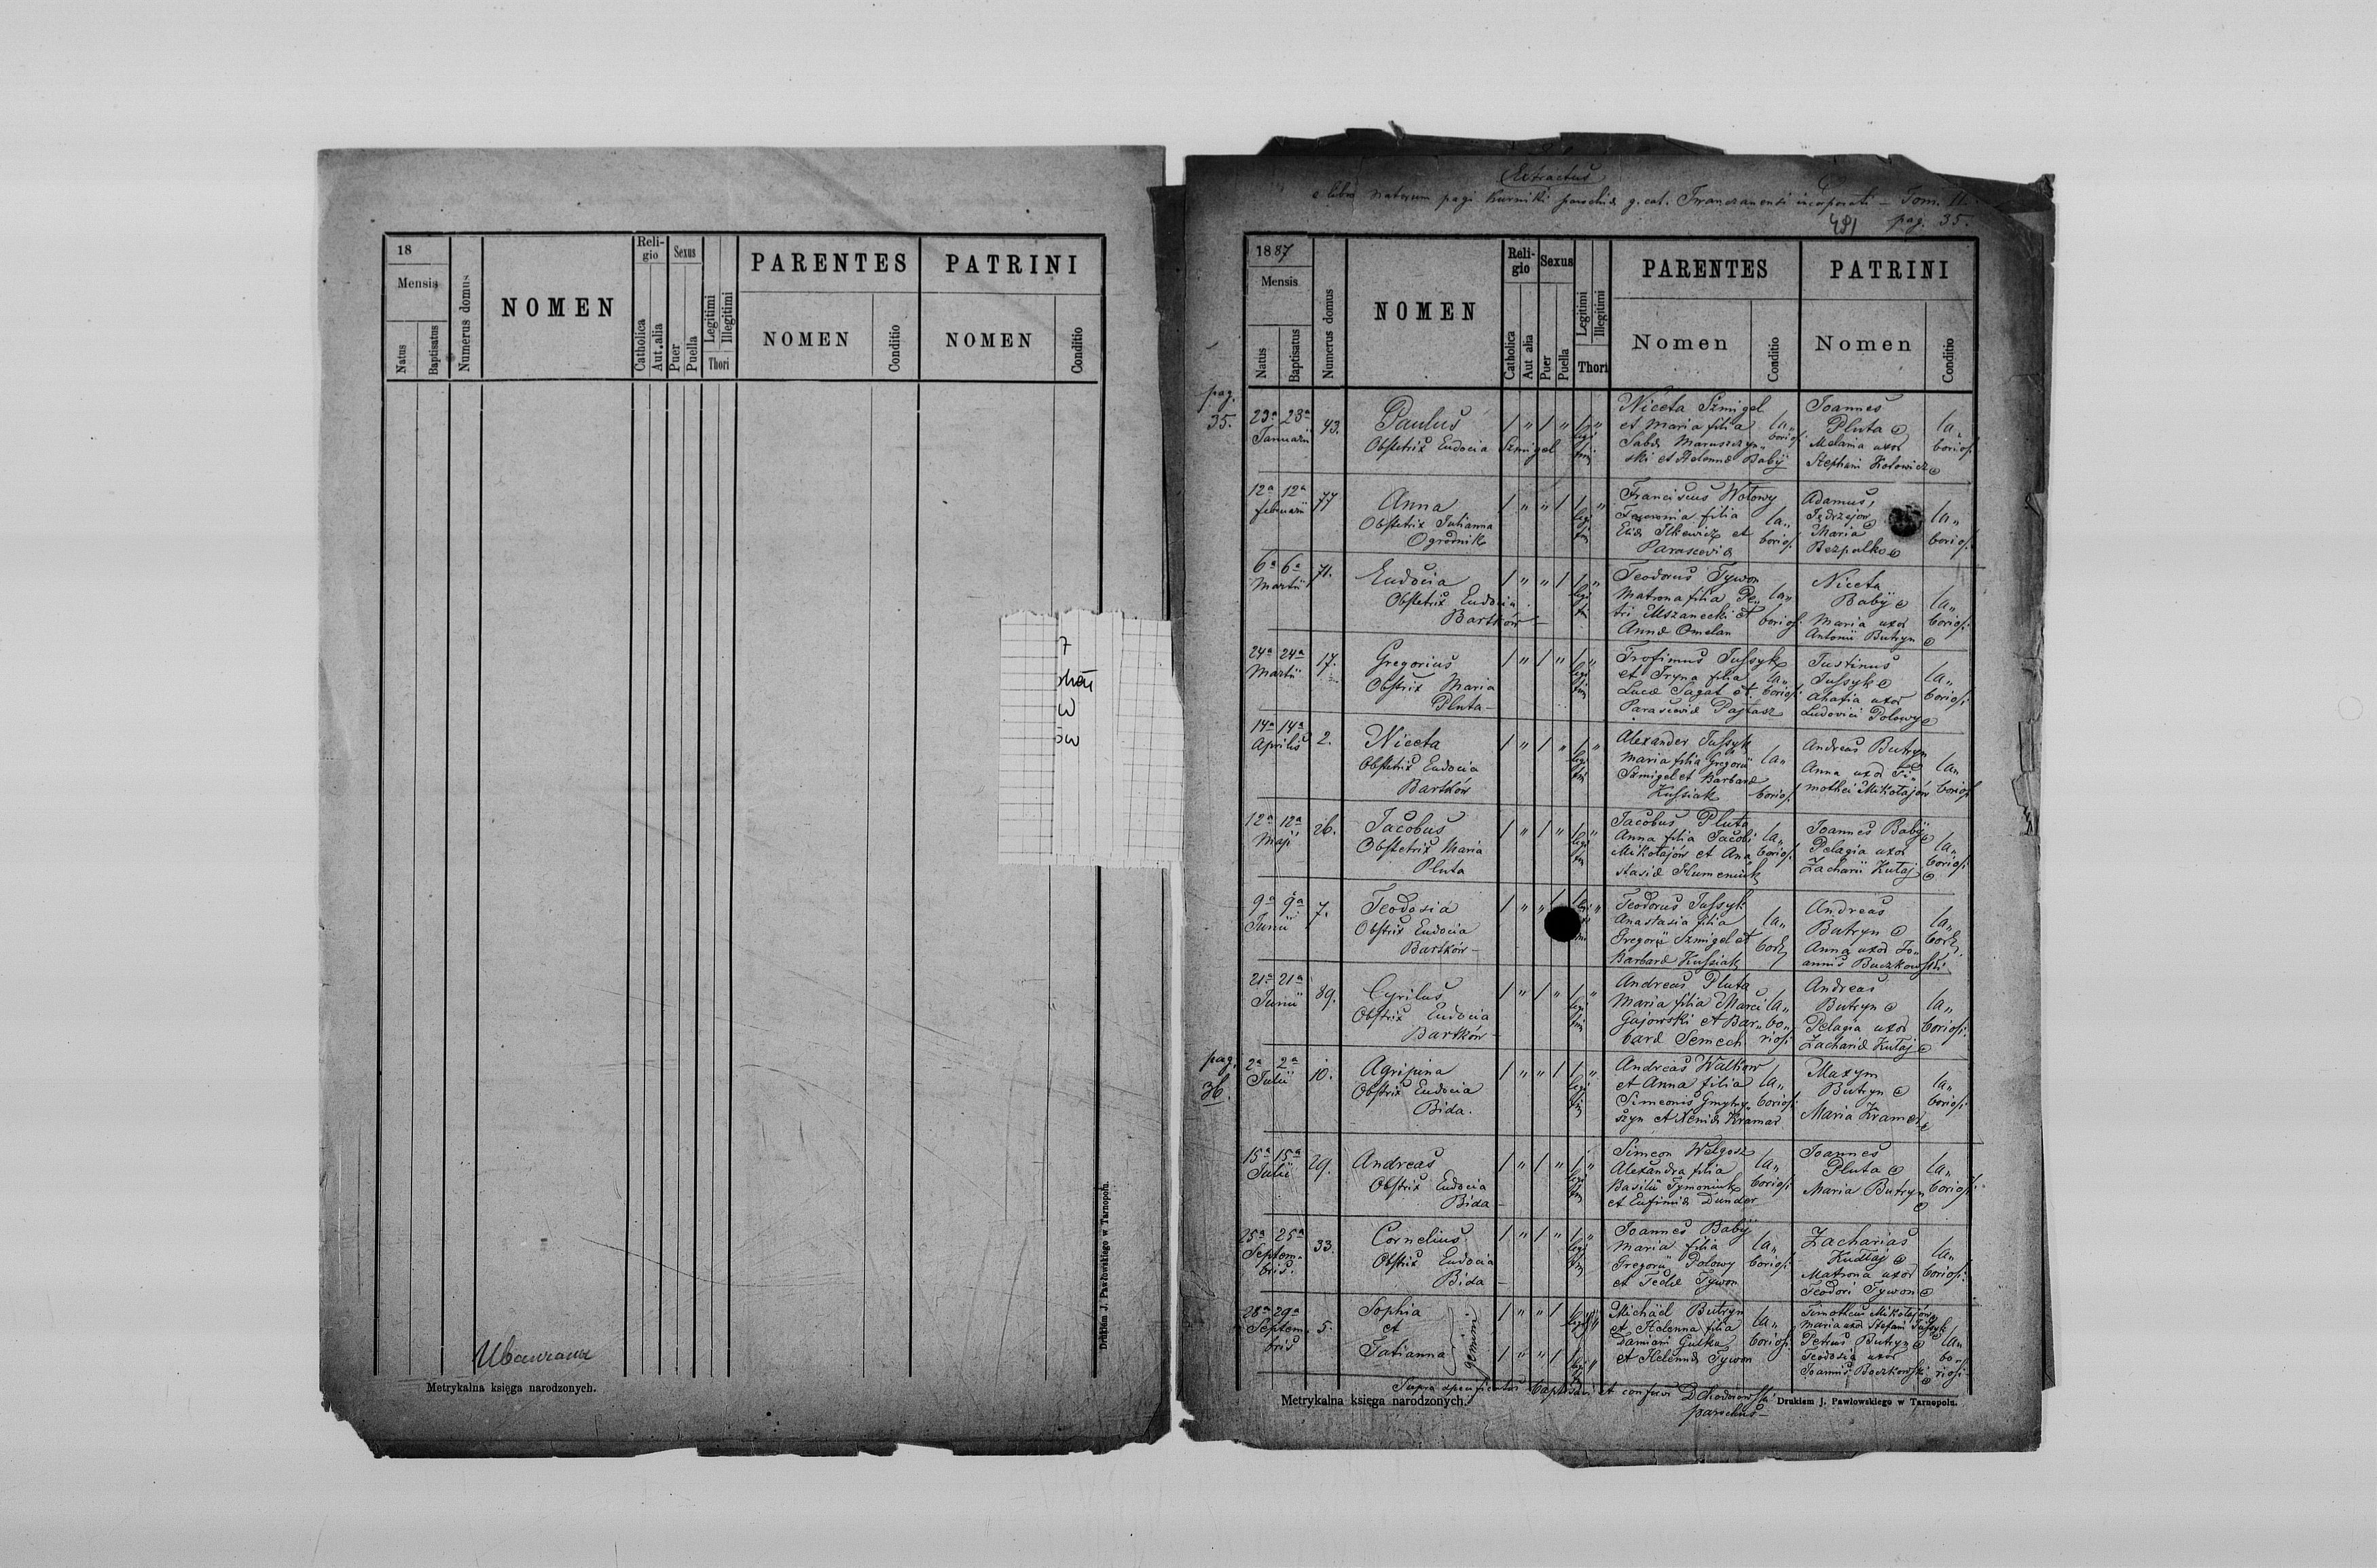 18
Mensis
Natus
Baptisatus
Numerus domus
NOMEN
Religio
Catholica
Aut. alia
Sexus
Puer
Puella
Legitimi
Illegitimi
Thori
PARENTES
NOMEN
Conditio
PATRINI
NOMEN
Conditio
Metrykalna księga narodzonych.
Drukiem J. Pawłowskiego w Tarnopolu.
Extractus
e libro natorum pagi Kurniki parochiæ g. cat. Iwanczanensi incorporati – Tom. II.
pag. 35.
491
1887
Mensis
Natus
Baptisatus
Numerus domus
NOMEN
Reli-
gio
Catholica
Aut alia
Sexus
Puer
Puella
Legitimi
Illegitimi
Thori
PARENTES
Nomen
Conditio
PATRINI
Nomen
Conditio
pag.
35.
23a 23a
Januarii
43.
Paulus
Obstetrix Eudocia Szmigel
Niceta Szmigel
et Maria filia
Sabæ Maruszczyn-
ski et Helennæ Babÿ
la„
boriosi
Joannes
Pluta
Melania uxor
Stephani Kotowicz
la„
boriosi
12a 12a
Februarii
77
Anna
Obstetrix Julianna
Ogrodnik
Franciscus Wołowy
filia
Eliæ Ilkewicz et
Parasceviæ
la„
boriosi
Adamus
Jędrzejow
Maria
Bezpalko
la„
boriosi
6a 6a
Martii
71.
Eudocia
Obstetrix Eudocia
Bartków –
Teodorus Tywon
Matrona filia Pe„
tri Mszanecki et
Annæ Omelan
la„
boriosi
Niceta
Babÿ
Maria uxor
Antonii Butryn
la„
boriosi
24a 24a
Martii
17.
Gregorius
Obstrix Maria
Pluta –
Trofimus Jussyk
et Iryna filia
Lucæ Sagat et
Parasceviæ Pajtasz
la„
boriosi
Justinus
Jussyk
Ahafia uxor
Ludovici Polowy
la„
boriosi
14a 14a
Aprilis
2.
Niceta
Obstetrix Eudocia
Bartków
Alexander Jussyk
Maria filia Gregorii
Szmigel et Barbaræ
Kussiak
la„
boriosi
Andreas Butryn
Anna uxor Ti„
mothei Mikołajów
la„
boriosi
12a 12a
Maji
26.
Jacobus
Obstetrix Maria
Pluta
Jacobus Pluta
Anna filia Jacobi
Mikołajów et Ana„
stasiæ Humeniuk
la„
boriosi
Joannes Babÿ
Pelagia uxor
Zacharii Kułaj
la„
boriosi
9a 9a
Junii
7.
Teodosia
Obstrix Eudocia
Bartków –
Teodorus Jussyk
Anastasia filia
Gregorii Szmigel et
Barbaræ Kussiak
la„
Andreas
Butryn
Anna uxor Jo„
annis Buczkowski
la„
21a 21a
Junii
89.
Cyrilus
Obstrix Eudocia
Bartków –
Andreas Pluta
Maria filia Marci
Gajowski et Bar„
baræ Semech
la„
bo„
riosi
Andreas
Butryn
Pelagia uxor
Zachariæ Kułaj
la„
boriosi
pag.
36.
2a 2a
Julii
10.
Agripina
Obstrix Eudocia
Bida.
Andreas Walkow
et Anna filia
Simeonis
szyn et Xeniæ Kramar
la„
boriosi
Maxym
Butryn
Maria Kramar
la„
boriosi
15a 15a
Julii
29.
Andreas
Obstrix Eudocia
Bida –
Simeon Welgosz
Alexandra filia
Basilii Tymoniuk
et Eufimiæ Dunder
la„
boriosi
Joannes
Pluta
Maria Butryn
la„
boriosi
25a 25a
Septem„
bris.
33.
Cornelius
Obstrix Eudocia
Bida –
Joannes Babÿ
Maria filia
Gregorii Polowy
et Teclæ Tywon
la„
boriosi
Zacharias
Kudłaj
Matrona uxor
Teodori Tywon
la„
boriosi
28a 29a
Septem„
bris
5.
Sophia
et
Tatianna
gemini
Michaël Butryn
et Helenna filia
Damiani Gulka
et Helennæ Tywon
la„
boriosi
Timotheus Mikołajów
Maria uxor Stefani Jussyk
Petrus Butryn
Teodosia uxor
Joannis Baczkowski
la„
bo„
riosi
Supra specificatos baptisavi et
parochus –
Metrykalna księga narodzonych.
Drukiem J. Pawłowskiego w Tarnopolu.